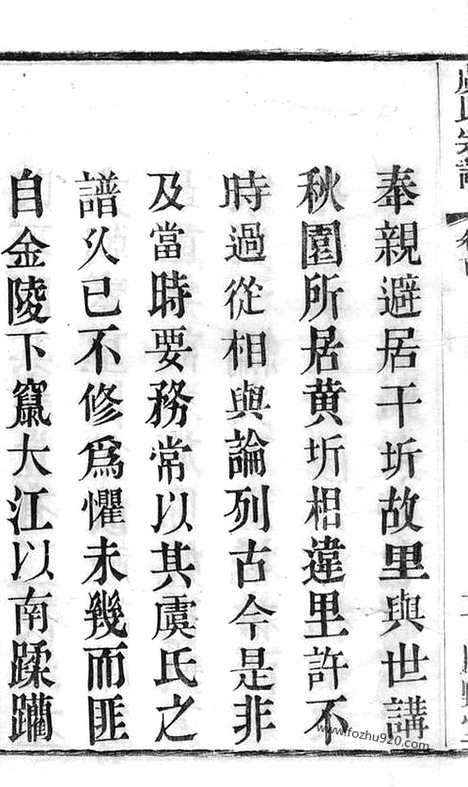 奉親避居干圻故里與世講
秋園所居黄圻相違里許不
時過從相與論列古今是非
及當時要務常以其虞氏之
譜久已不修爲懼未幾而匪
自金陵下竄大江以南蹂躪
www.fozhu920.com